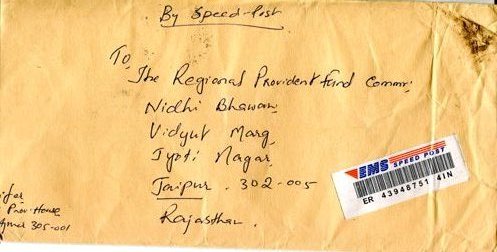 By Speed-Post
To,
The Regional Provident Fund Commr.
Nidhi Bhawan,
Vidyut Marg,
Jyoti Nagar,
Jaipur. 302-005
Rajasthan.
EMS SPEED POST
ER 43948751 4IN
Prov. House
Ajmer 305-001